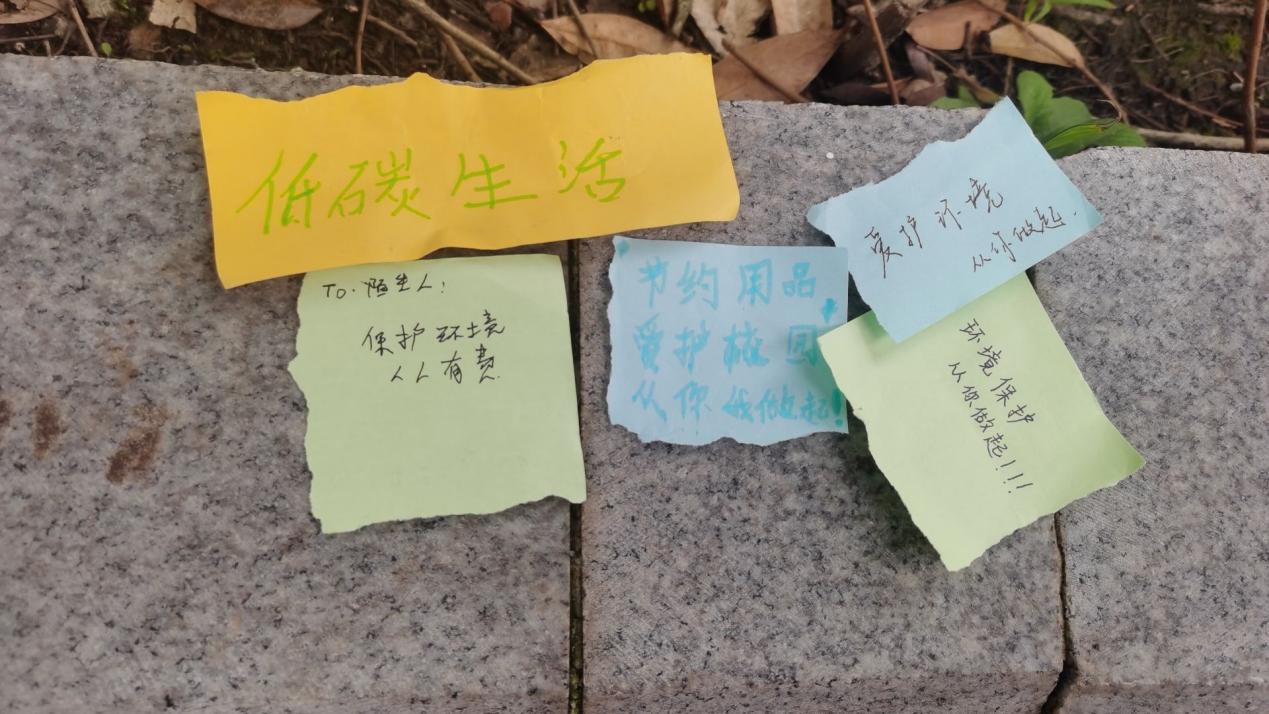 低碳生活
TO.陌生人:
保护环境
人人有责
节约用品
爱护校园
从你我做起!
爱护环境
从你做起.
环境保护
从你做起!!!